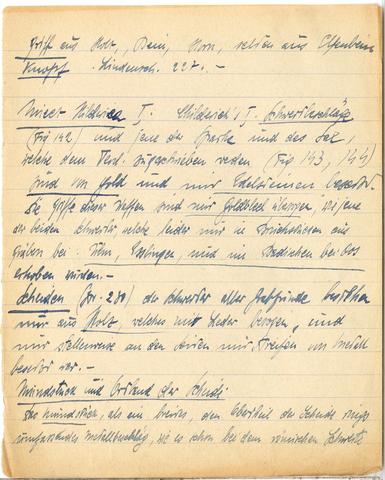 Griff aus Holz, Bein, Horn, selten aus Elfenbein
Knopf. Lindensch. 227. –
Childerich I. Childerich's I. Schwertbeschläge
(Fig 142) und jene der Spatha und des Sax,
welche dem zugeschrieben werden (Fig 143, 144)
sind von Gold und mit Edelsteinen besetzt.
Die Griffe dieser Waffen sind mit Goldblech überzogen, wie jene
der beiden Schwerter, welche leider nur in Bruchstücken aus
Gräbern bei Ulm, und im Badischen bei
erhoben wurden. –
Scheiden (230) der Schwerter aller Grabfunde bestehen
nur aus Holz, welches mit Leder bezogen, und
nur stellenweise an den Seiten mit Streifen von Metall
besetzt war. –
Mundstück und Ortband der Scheide
Das Mundstück, als ein breites, den Oberteil der Scheide rings
umfassendes Metallbeschläg, wie es schon bei dem römischen Schwerte